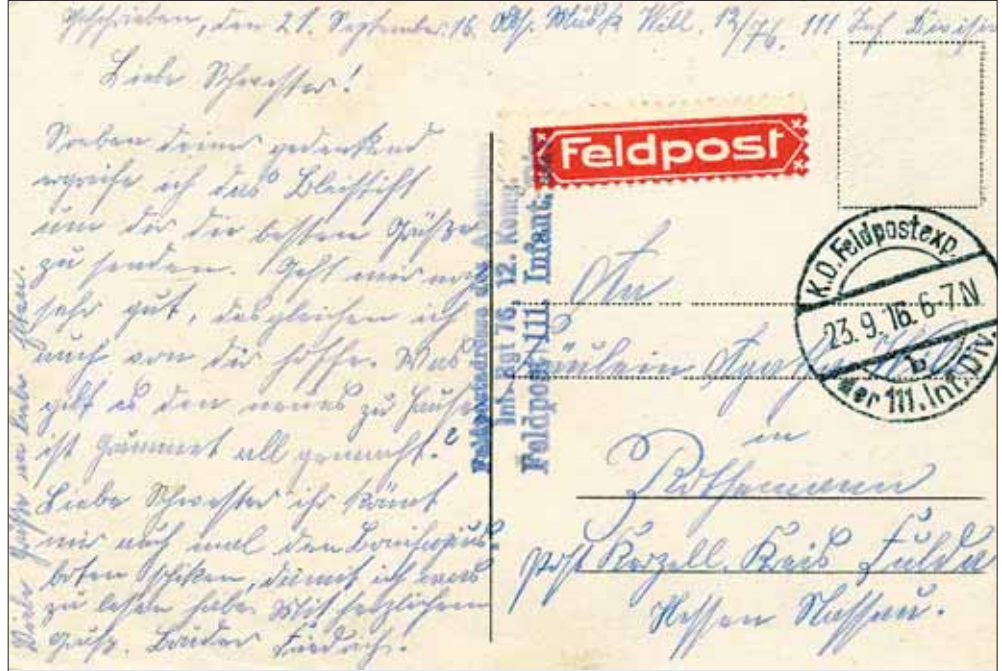 Geschrieben, den 21. September. 16. Abs. Musk. Will. 12/76. 111 Inf. Division
Liebe Schwester!
Soeben deiner gedenkend
ergreife ich das Bleistift
um dir die besten Grüße
zu senden. Geht mir noch
sehr gut, desgleichen ich
auch von dir hoffe. Was
gibt es den neues zu Hause
ist Grummet all gemacht?
Liebe Schwester ihr könnt
mir auch mal den Bonifazius
boten schiken, damit ich was
zu lesen habe. Mit herzlichem
Gruß. Bruder
Viele Grüße an
Feldpost
Feldpostadresse des
Inf. Rgt 76, 12. Komp.
Feldpost 111. Infant.
K.D. Feldpostexp.
23. 9. 16. 6-7N
b
der 111. Inf. Div.
An
Fräulein
in
Rothemann
post Kerzell. Kreis Fulda
Hessen Nassau.